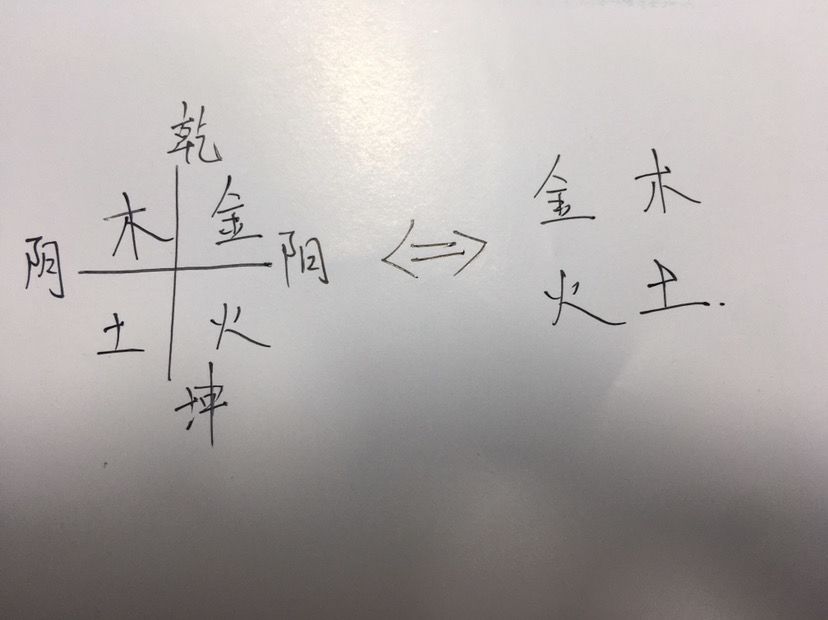 乾
木 金
阴 阳
土 火
坤
⇔
金 木
火 土.